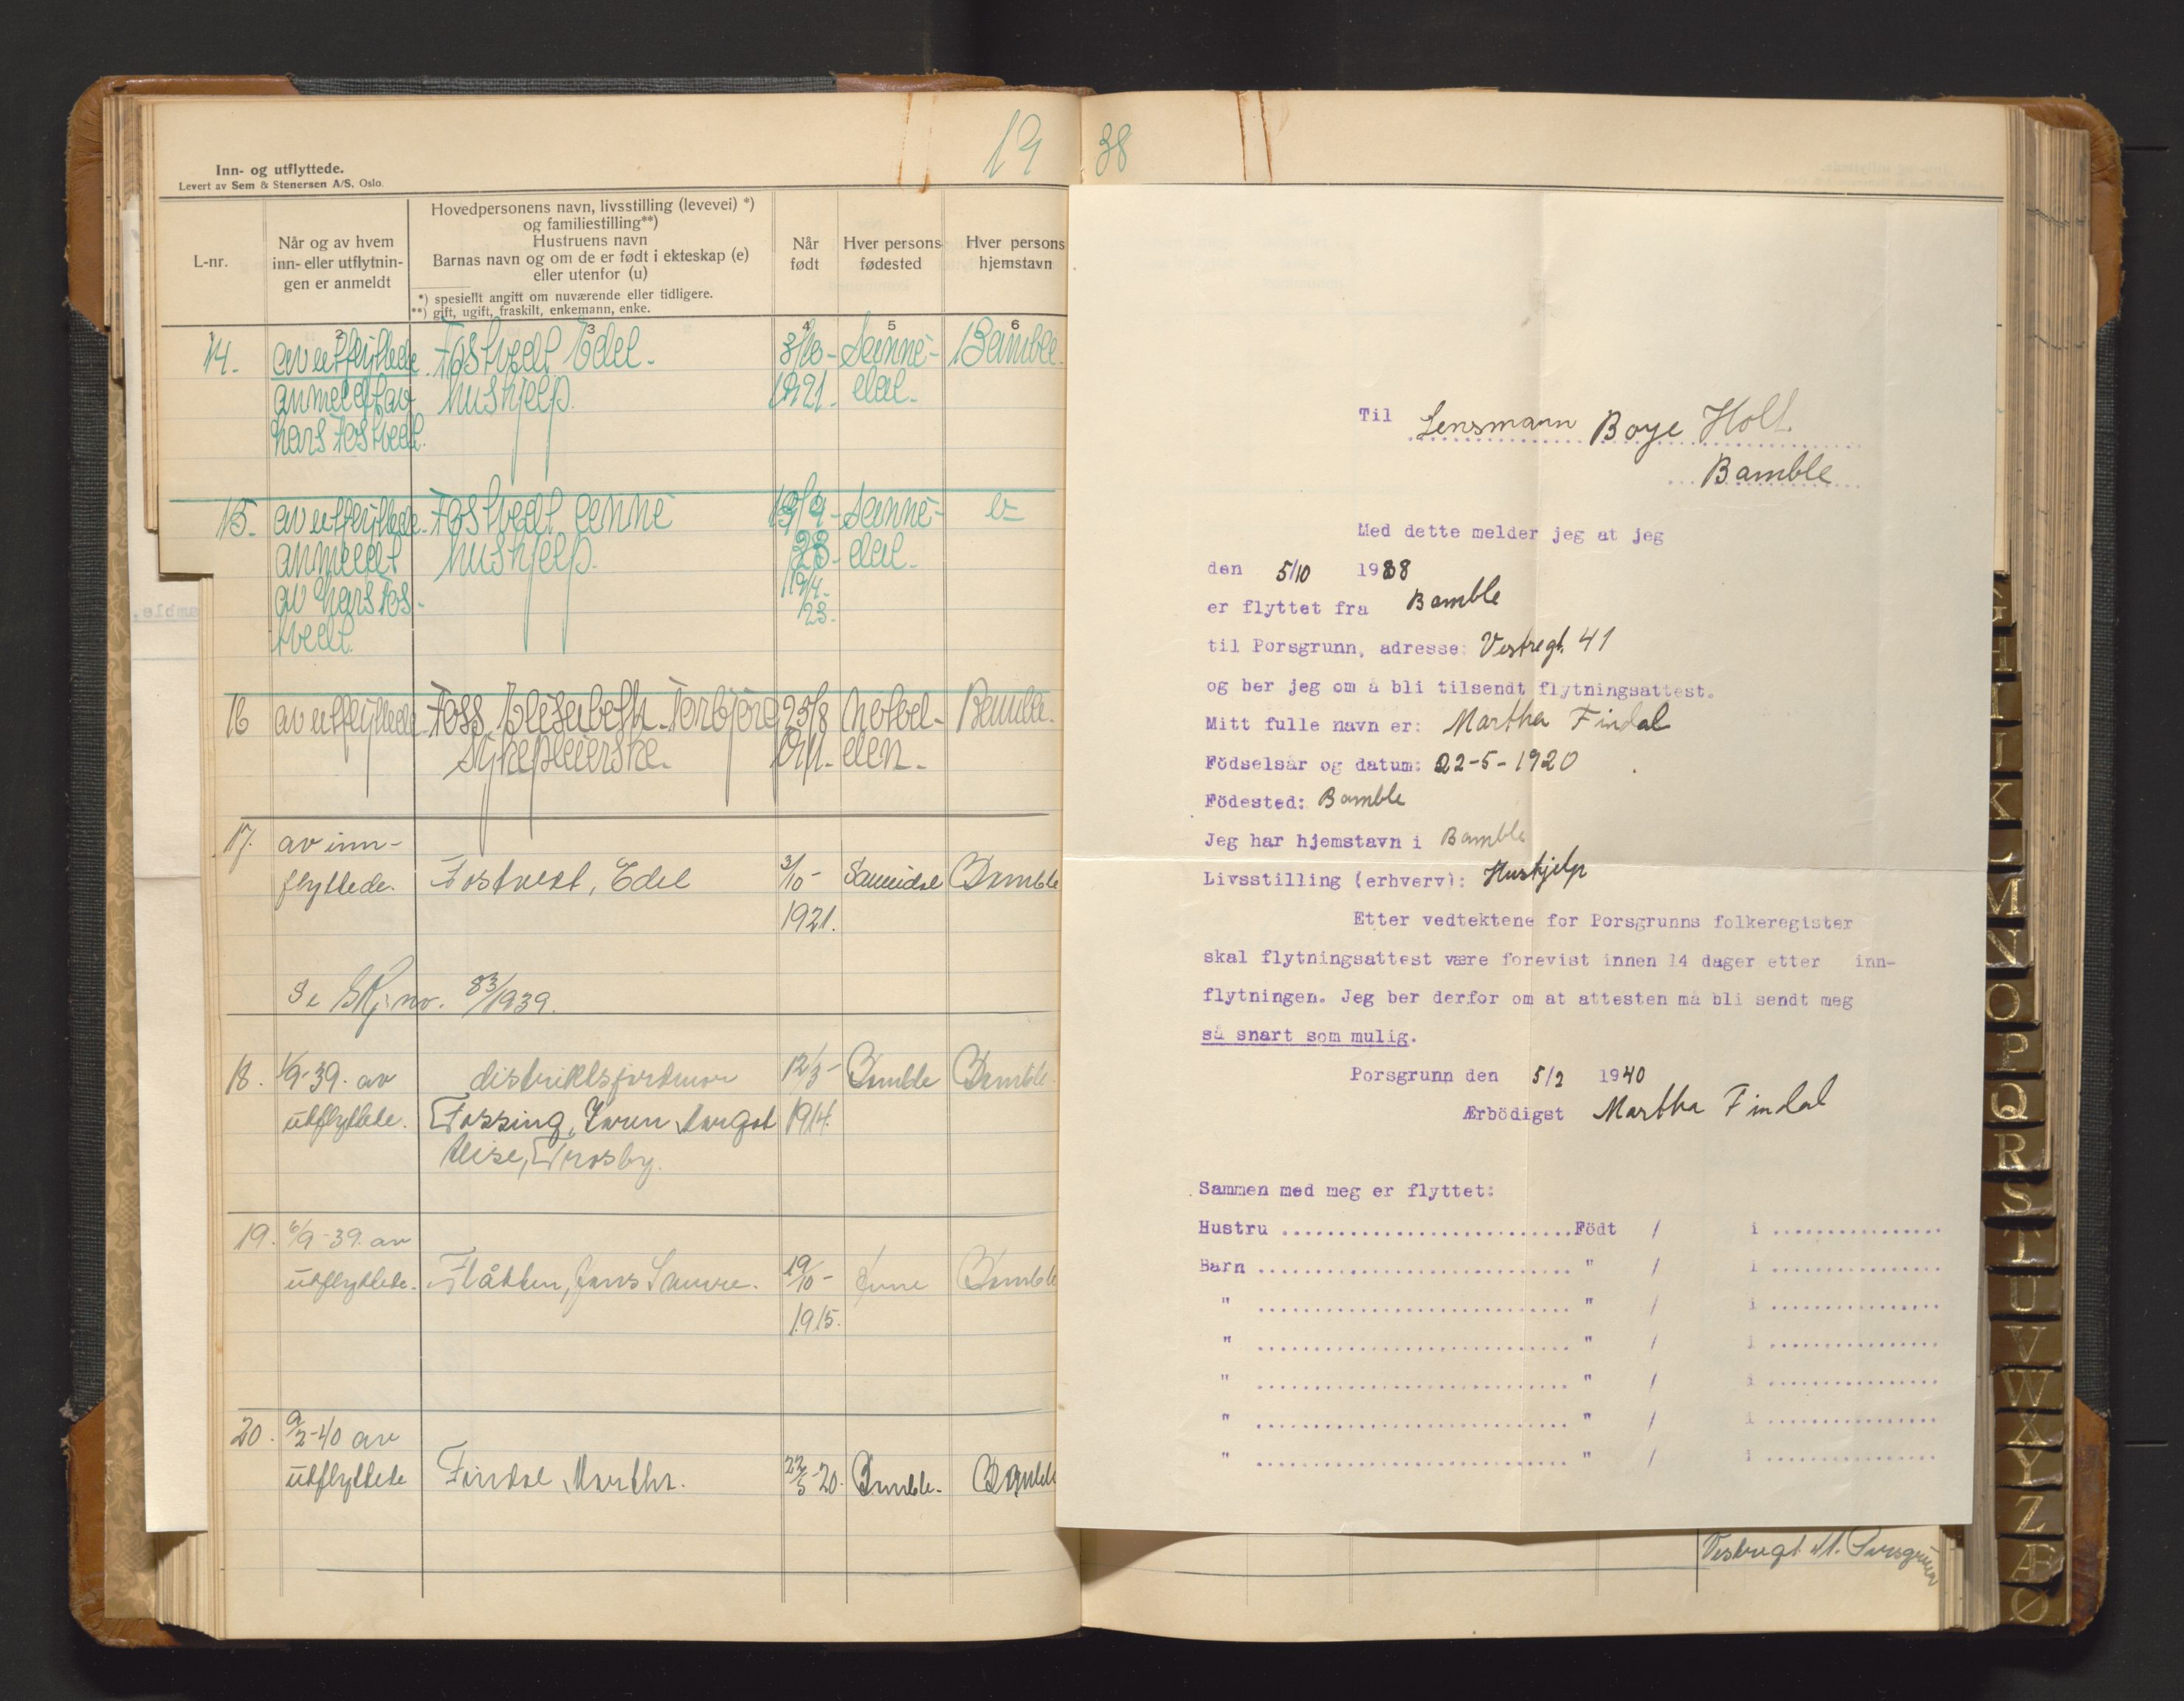 19
38
Inn- og utflyttede.
Levert av Sem & Stenersen A/S, Oslo.
L-nr.
Når og av hvem
inn- eller utflytnin-
gen er anmeldt
Hovedpersonens navn, livsstilling (levevei) *)
og familiestilling**)
Hustruens navn
Barnas navn og om de er født i ekteskap (e)
eller utenfor (u)
*) spesiellt angitt om nuværende eller tidligere.
**) gift, ugift, fraskilt, enkemann, enke.
Når
født
Hver persons
fødested
Hver persons
hjemstavn
2 3 4 5 6
14. av utflyttede Fostvedt Edel. 3/10- Sanne- Bamble.
anmeldt av hushjelp. 1921. dal.
Lars Fostvedt.
15. av utflyttede Fostvedt Lenne Sanne-
anmeldt hushjelp. 23. dal.
av Lars Fos-
tvedt. 23.
16 av utflyttede Foss Elisabeth Torbjørg 25/8 Bamble.
Sykepleierske.
17. av inn-
flyttede. Fostvedt, Edel 3/10- Sannidal Bamble
1921.
Se Skj. nr. 83/1939.
18. 1/9-39. av distriktsjordmor 12/3- Bamble Bamble.
utflyttede. Fossing, Karen Margot 1914.
Alise, Trosby.
19. 6/9-39. av
utflyttede. Flåtten, Jens 19/10- Bamble
1915.
20. 9/2-40 av
utflyttede Findal Martha. 22/5-20. Bamble. Bamble
Til Lensmann Boye Holt
Bamble
Med dette melder jeg at jeg
den 5/10 1938
er flyttet fra Bamble
til Porsgrunn, adresse: Vestregt. 41
og ber jeg om å bli tilsendt flytningsattest.
Mitt fulle navn er: Martha Findal
Födselsår og datum: 22-5-1920
Födested: Bamble
Jeg har hjemstavn i Bamble
Livsstilling (erhverv): Hushjelp
Etter vedtektene for Porsgrunns folkeregister
skal flytningsattest være forevist innen 14 dager etter inn-
flytningen. Jeg ber derfor om at attesten må bli sendt meg
så snart som mulig.
Porsgrunn den 5/2 1940
Ærbödigst Martha Findal
Sammen med meg er flyttet:
Hustru ............................ Födt / i .................
Barn .............................. " / i .................
" .............................. " / i .................
" .............................. " / i .................
" .............................. " / i .................
" .............................. " / i .................
" .............................. " / i .................
Vestregt 41. Porsgrunn
G
H
I
J
K
L
M
N
O
P
Q
R
S
T
U
V
W
X
Y
Z
Æ
Ø